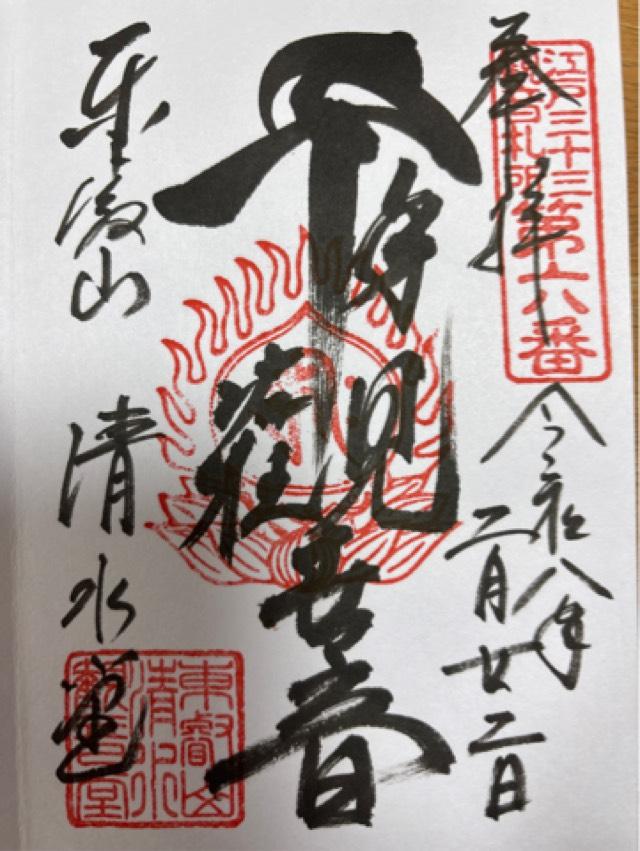 江戸三十三
観音札所第六番
奉拝
令和八年
二月廿二日
千手観世音
東叡山 清水堂
東叡山
清水
観音堂